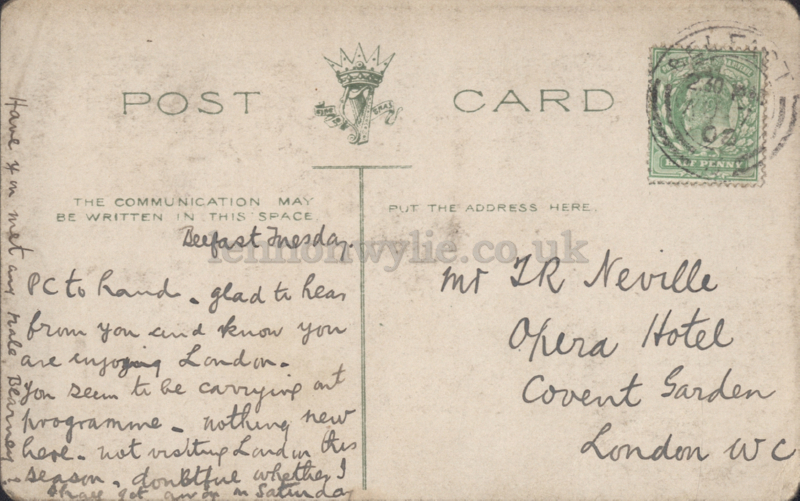 POST CARD
BELFAST
HALF PENNY
THE COMMUNICATION MAY
BE WRITTEN IN THIS SPACE
PUT THE ADDRESS HERE.
lennonwylie.co.uk
Belfast Tuesday.
PC to hand - glad to hear
from you and know you
are enjoying London.
You seem to be carrying out
programme - nothing new
here - not visiting London this
season - doubtful whether I
shall get away on Saturday
Have you met any male
Mr T R Neville
Opera Hotel
Covent Garden
London WC